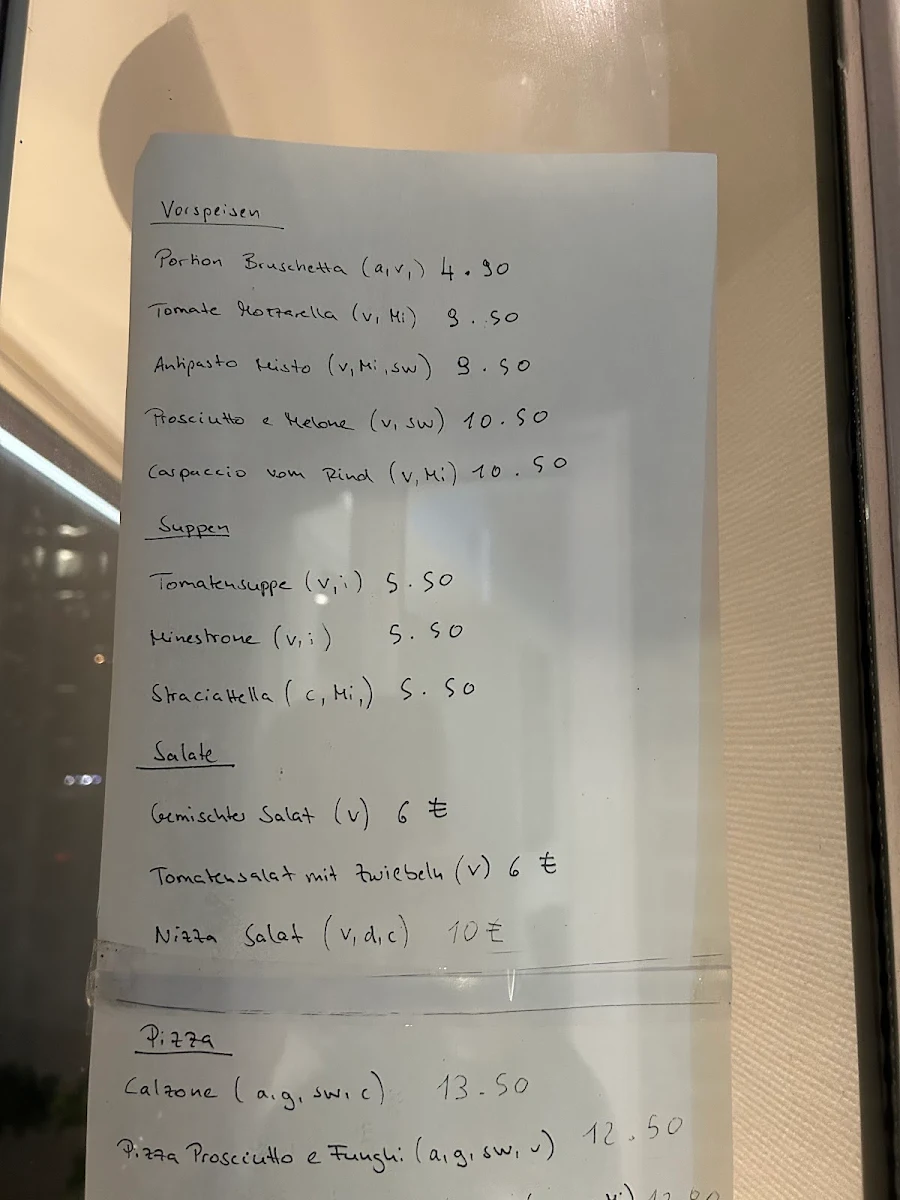 Vorspeisen
Portion Bruschetta (a,v,) 4.90
Tomate Mozzarella (v, Mi) 9.50
Antipasto Misto (v, Mi, sw) 9.50
Prosciutto e Melone (v, sw) 10.50
Carpaccio vom Rind (v, Mi) 10.50
Suppen
Tomatensuppe (v,i) 5.50
Minestrone (v,i) 5.50
Straciattella ( c, Mi,) 5.50
Salate
Gemischter Salat (v) 6 €
Tomatensalat mit Zwiebeln (v) 6 €
Nizza Salat (v, d, c) 10 €
Pizza
Calzone (a, g, sw, c) 13.50
Pizza Prosciutto e Funghi (a, g, sw, v) 12.50